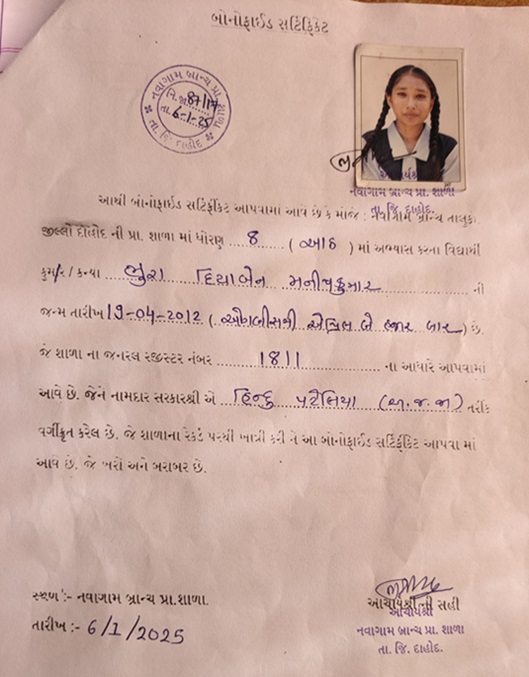 બોનોફાઈડ સર્ટિફિકેટ
નવાગામ બ્રાન્ચ પ્રા. શાળા
નિ.જા. 87/17
તા. 6-1-25
તા. જિ. દાહોદ
આચાર્યશ્રી
નવાગામ બ્રાન્ચ પ્રા. શાળા
તા. જિ. દાહોદ.
આથી બોનોફાઈડ સર્ટિફીકેટ આપવામાં આવે છે કે મોજે : નવાગામ બ્રાન્ચ તાલુકા.
જીલ્લો દાહોદ ની પ્રા. શાળા માં ધોરણ 8 ( આઠ ) માં અભ્યાસ કરતા વિદ્યાર્થી
કુમાર / કન્યા ભુરા દિયાબેન મનીષકુમાર ની
જન્મ તારીખ 19-04-2012 ( ઓગણીસમી એપ્રિલ બે હજાર બાર ) છે.
જે શાળા ના જનરલ રજીસ્ટર નંબર 1811 ના આધારે આપવામાં
આવે છે. જેને નામદાર સરકારશ્રી એ હિન્દુ પટેલિયા (અ.જ.જા) તરીકે
વર્ગીકૃત કરેલ છે. જે શાળાના રેકર્ડ પરથી ખાત્રી કરી ને આ બોનોફાઈડ સર્ટિર્ફીકેટ આપવા માં
આવે છે. જે ખરો અને બરાબર છે.
સ્થળ :- નવાગામ બ્રાન્ચ પ્રા.શાળા.
તારીખ :- 6/1/2025
આચાર્યશ્રી ની સહી
આચાર્યશ્રી
નવાગામ બ્રાન્ચ પ્રા. શાળા
તા. જિ. દાહોદ.